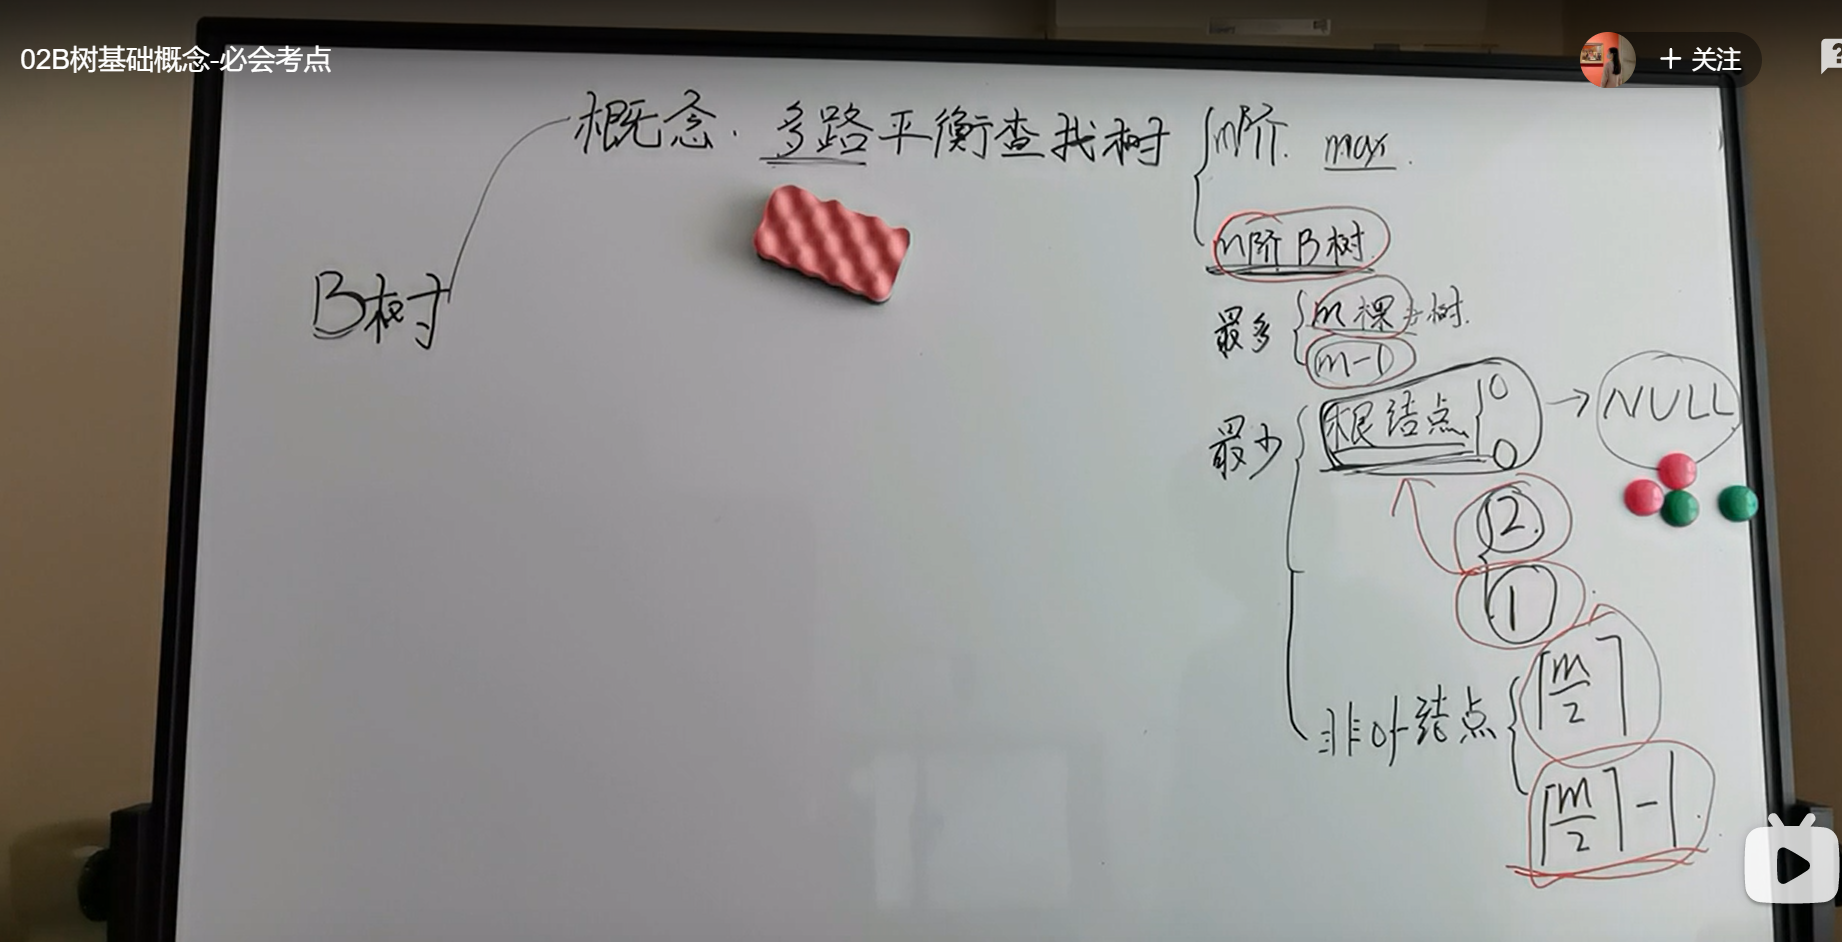 02B树基础概念-必会考点
+ 关注
概念. 多路平衡查找树
m阶. max.
m阶B树
B树
最多
m棵子树.
m-1
最少
根结点
0
0
→ NULL
2
1
非叶结点
⌈m/2⌉
⌈m/2⌉-1